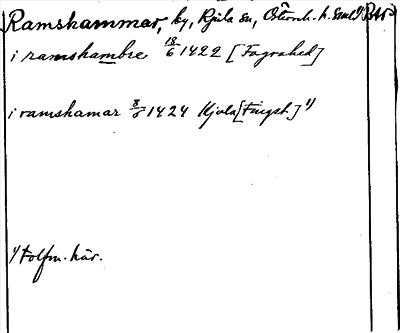 Ramshammar, by, Kjula sn, Österrek. h. Sml. BR
i ramshambre 18/6 1422 [Fagrahed]
i ramshamar 8/6 1424 Kjula [Tingst.] 1)
1) Tolfm. här.